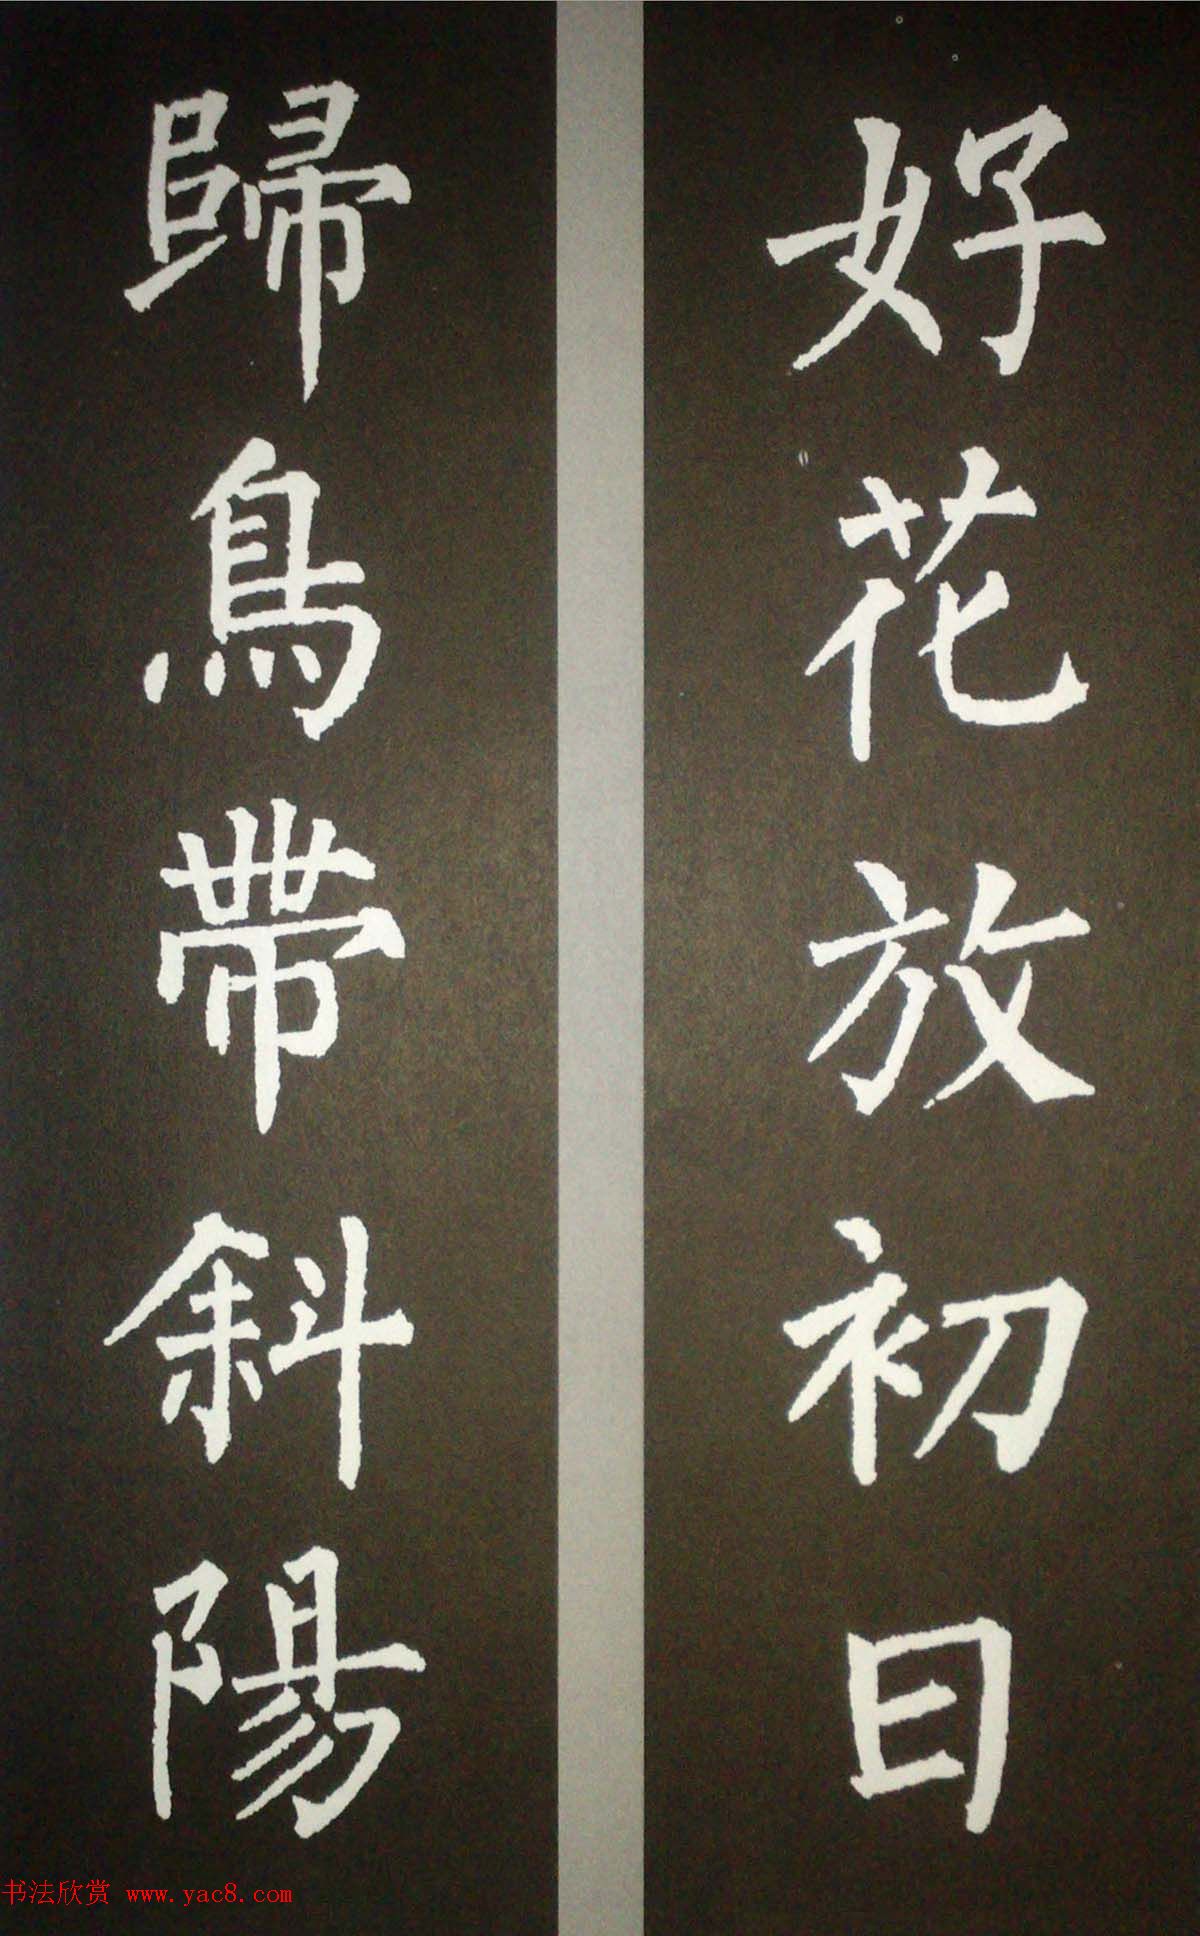 好花放初日
歸鳥帶斜陽
书法欣赏 www.yac8.com